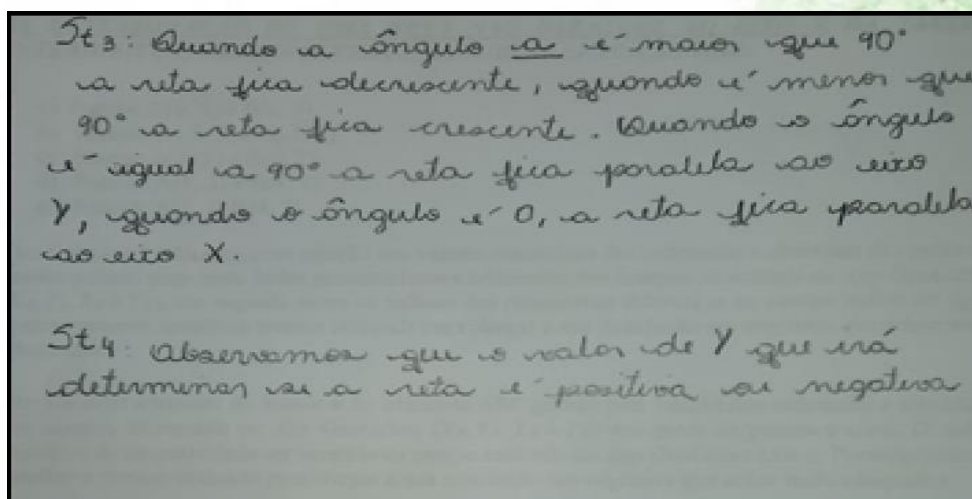 St3: Quando a ângulo a é maior que 90°
a reta fica decrescente, quando é menor que
90° a reta fica crescente. Quando o ângulo
é igual a 90° a reta fica paralela ao eixo
Y, quando o ângulo é 0, a reta fica paralela
ao eixo X.
St4: Observamos que o valor de Y que irá
determinar se a reta é positiva ou negativa